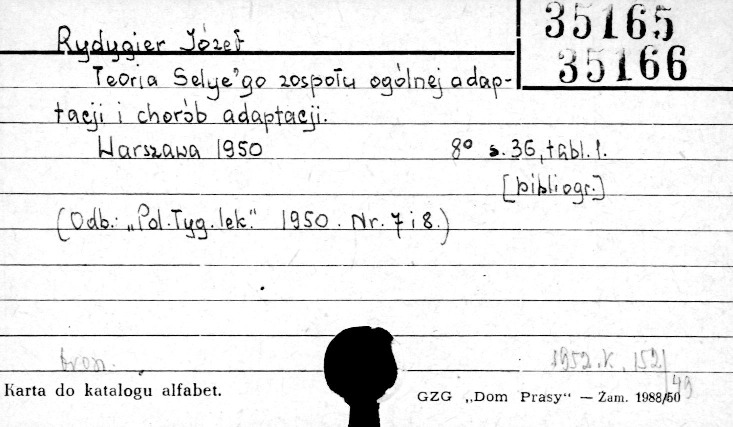 35165
35166
Rydygier Józef
Teoria Selye'go zospołu ogólnej adap-
tacji i chorób adaptacji.
Warszawa 1950 8° s. 36, tabl. 1.
[bibliogr.]
(Odb.: „Pol. Tyg. lek." 1950. Nr. 7 i 8.)
1952. K. 152/49
Karta do katalogu alfabet.
GZG „Dom Prasy" — Żam. 1988/50